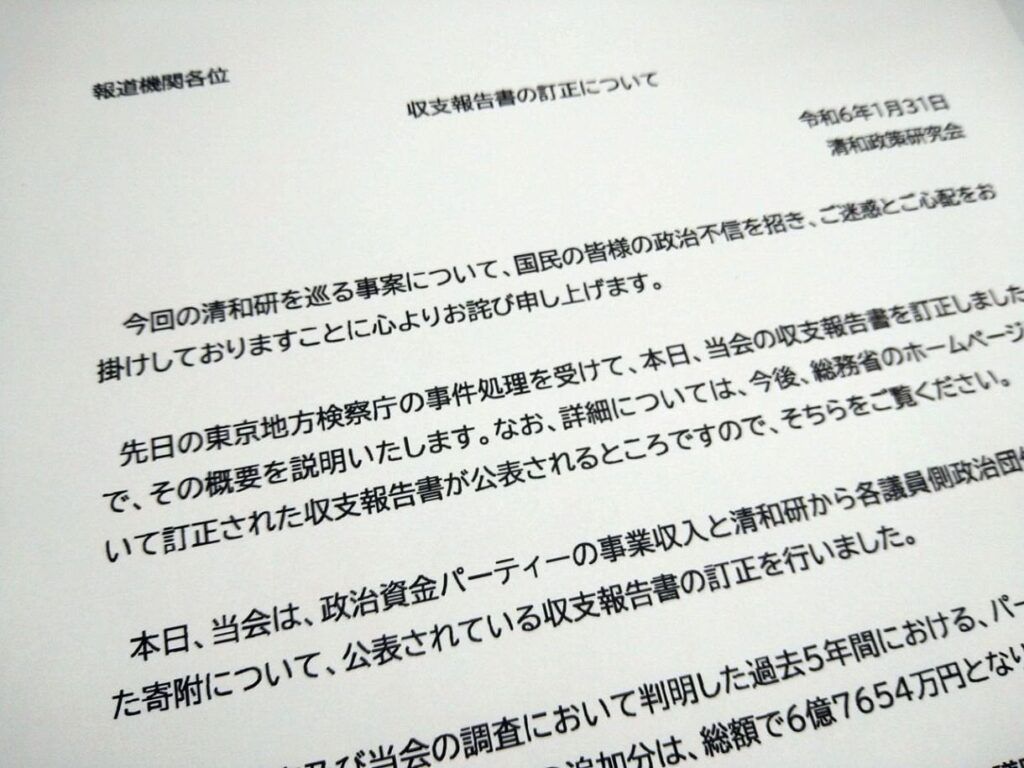 報道機関各位
収支報告書の訂正について
令和6年1月31日
清和政策研究会
今回の清和研を巡る事案について、国民の皆様の政治不信を招き、ご迷惑とご心配をお
掛けしておりますことに心よりお詫び申し上げます。
先日の東京地方検察庁の事件処理を受けて、本日、当会の収支報告書を訂正しました
で、その概要を説明いたします。なお、詳細については、今後、総務省のホームページ
いて訂正された収支報告書が公表されるところですので、そちらをご覧ください。
本日、当会は、政治資金パーティーの事業収入と清和研から各議員側政治団
た寄附について、公表されている収支報告書の訂正を行いました。
及び当会の調査において判明した過去5年間における、パー
追加分は、総額で6億7654万円とない